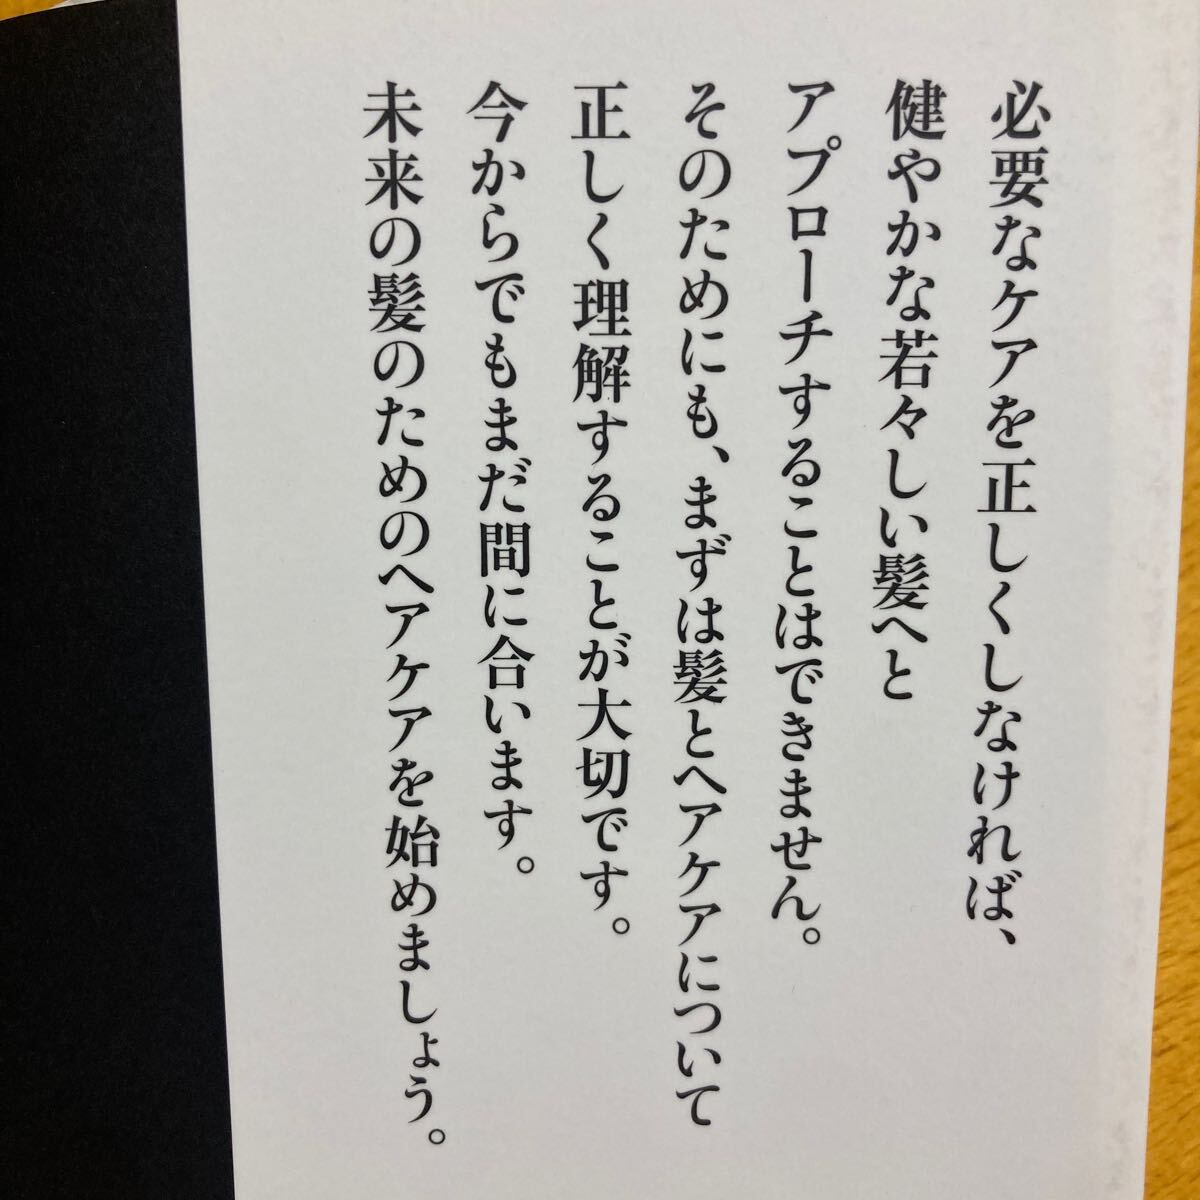 必要なケアを正しくしなければ、
健やかな若々しい髪へと
アプローチすることはできません。
そのためにも、まずは髪とヘアケアについて
正しく理解することが大切です。
今からでもまだ間に合います。
未来の髪のためのヘアケアを始めましょう。